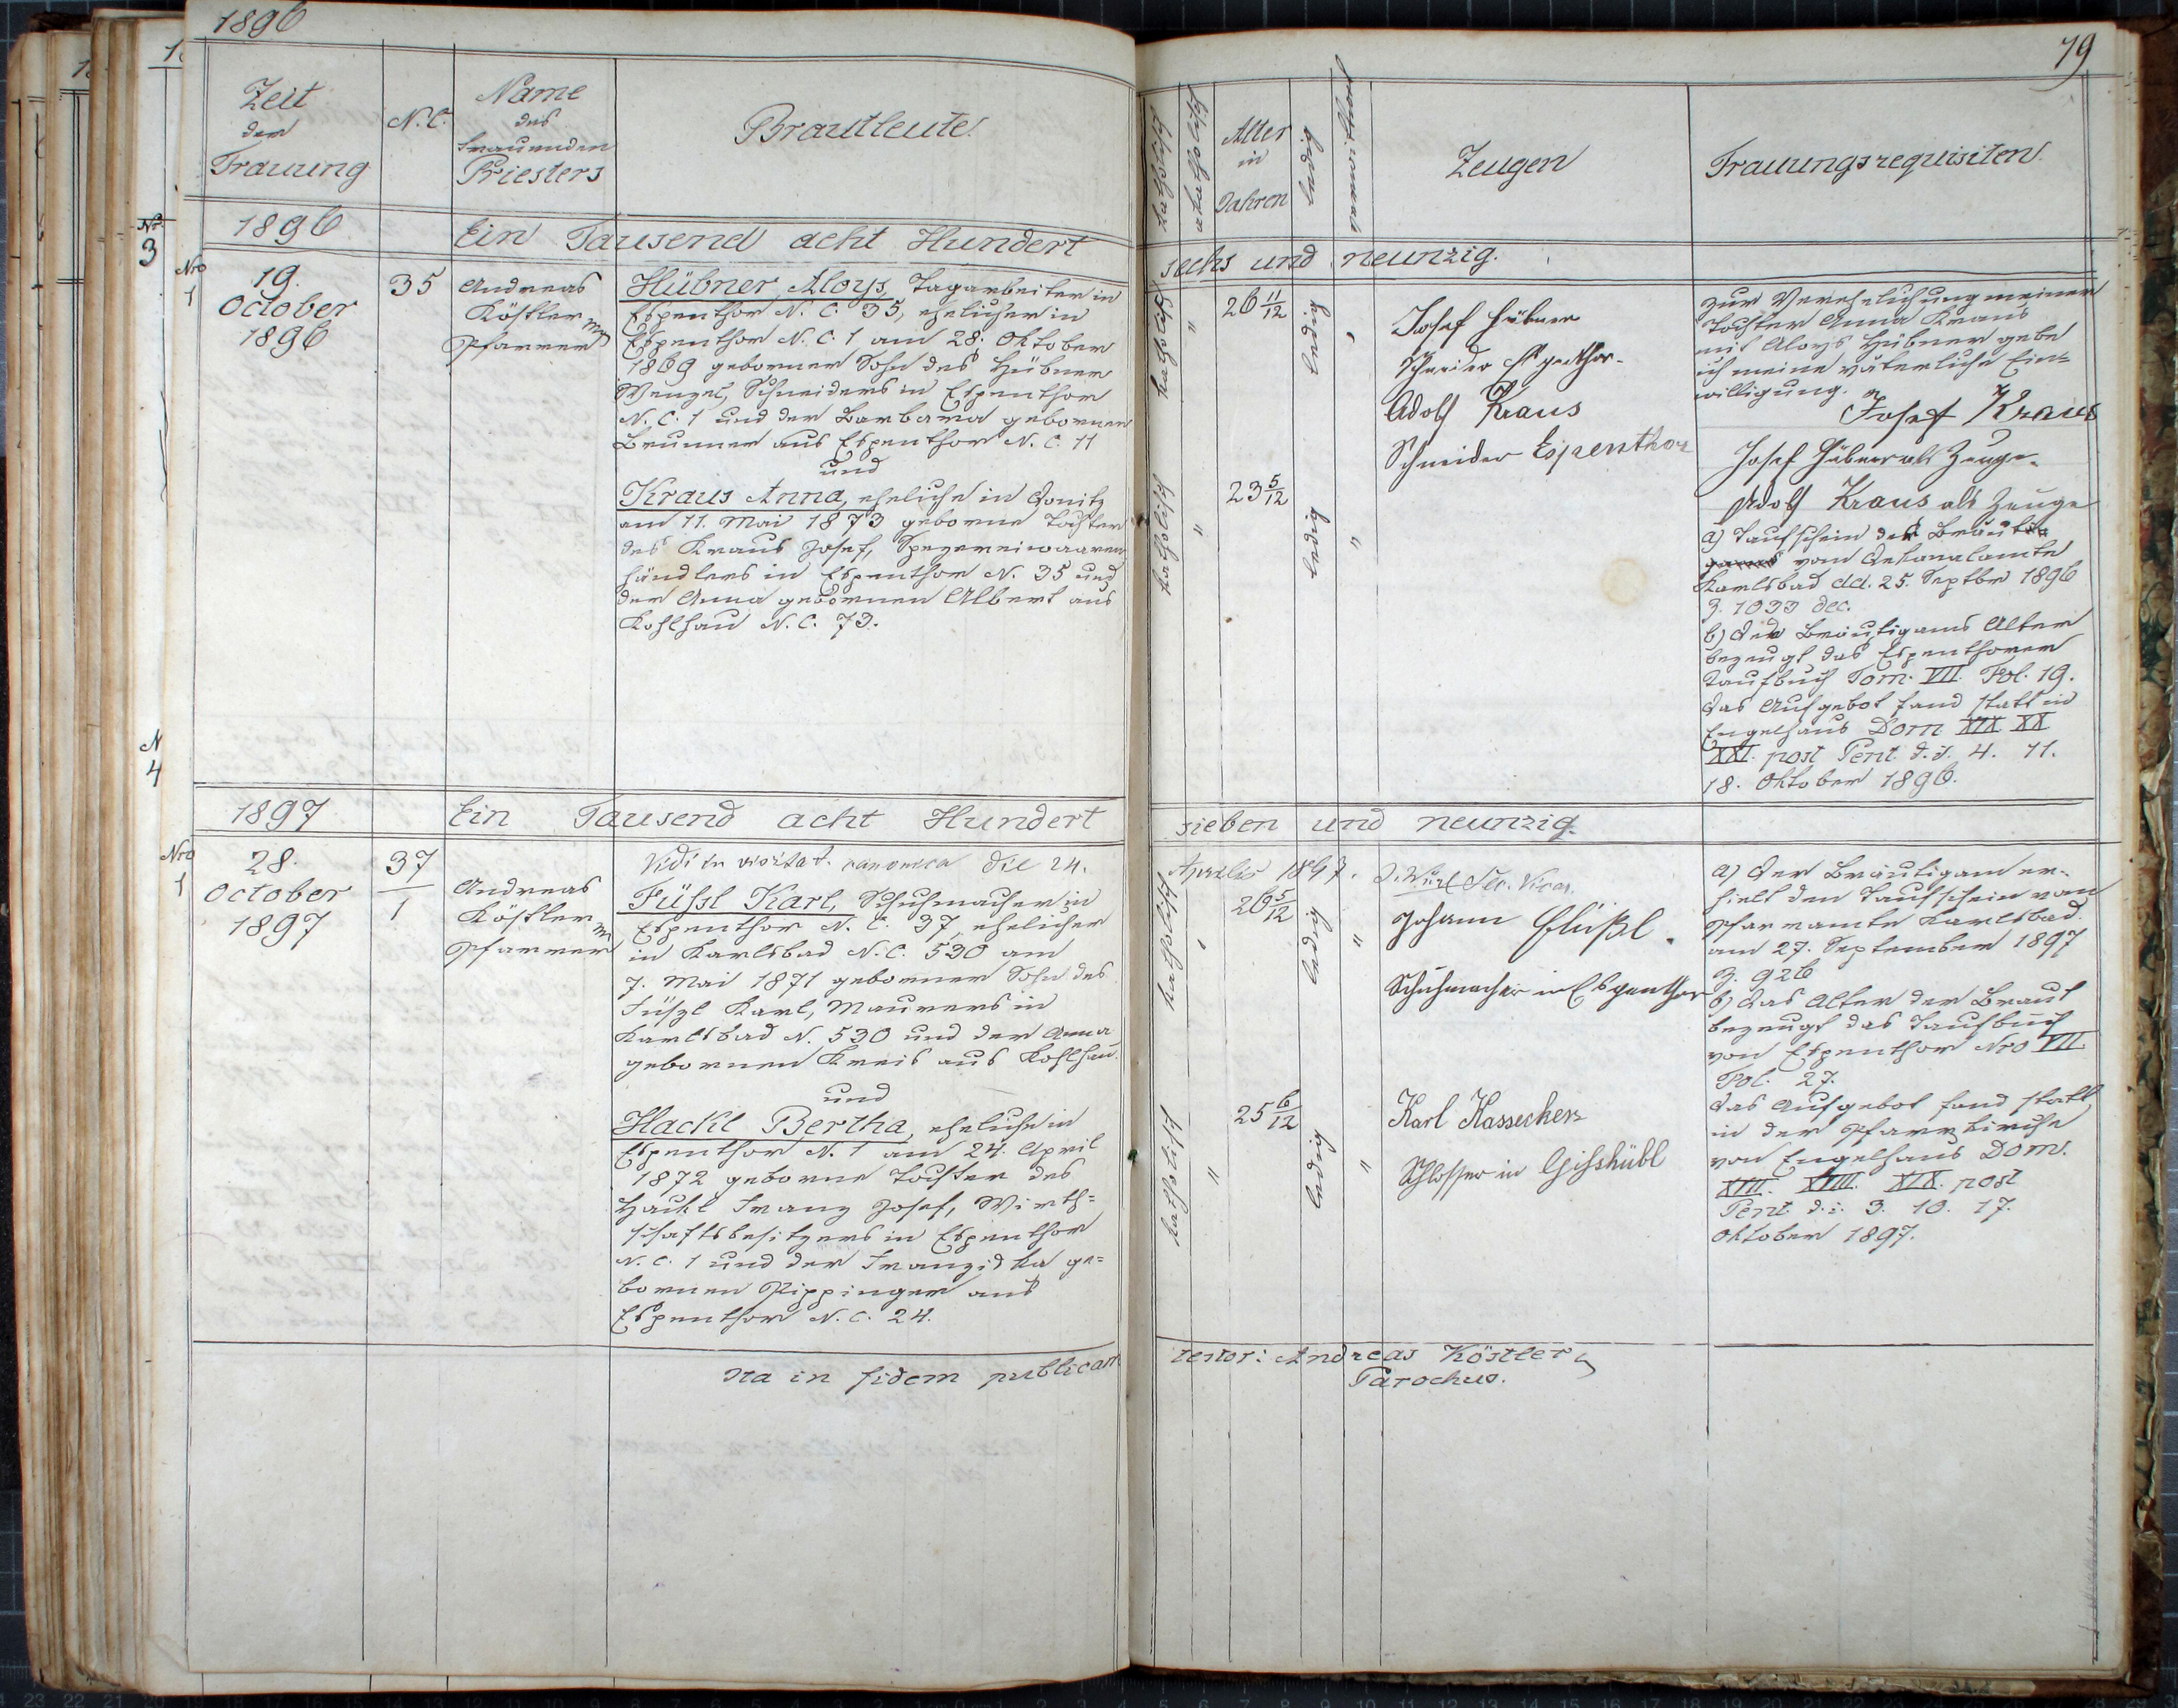 1896
Zeit
der
Trauung
N. C.
Name
des
trauenden
Priesters
Brautleute.
1896
Ein Tausend acht Hundert
Nro
1
19.
October
1896
35
Andreas
Köstler
Pfarrer
Hübner, Aloys, Tagarbeiter in
Espenthor N. C. 35, ehelicher in
Espenthor N. C. 1 am 28. Oktober
1869 geborner Sohn des Hübner
Wenzel, Schneiders in Espenthor
N. C. 1 und der Barbara gebornen
Brunner aus Espenthor N. C. 11
und
Kraus Anna, eheliche in Donitz
am 11. Mai 1873 geborne Tochter
des Kraus Josef, Spezereiwaaren
händlers in Espenthor N. 35 und
der Anna gebornen Albert aus
Kohlhau N. C. 73.
1897
Ein Tausend acht Hundert
Nro
1
28.
October
1897
37
1
Andreas
Köstler
Pfarrer
Vidi in visitat. canonica die 24.
Füssl Karl, Schuhmacher in
Espenthor N. C. 37, ehelicher
in Karlsbad N. C. 530 am
7. Mai 1871 geborner Sohn des
Füszl Karl, Maurers in
Karlsbad N. 530 und der Anna
gebornen Kreis aus Kohlhau.
und
Hackl Bertha, eheliche in
Espenthor N. 1 am 24. April
1872 geborne Tochter des
Hackl Franz Josef, Wirth=
schaftsbesitzers in Espenthor
N. C. 1 und der Franziska ge=
bornen Pippinger aus
Espenthor N. C. 24.
Ita in fidem publicam
Nr
3
N
4
79
katholisch
akatholisch
Alter
in
Jahren
ledig
verwittwet
Zeugen
Trauungsrequisiten.
sechs und neunzig.
katholisch
"
26 11/12
ledig
Josef Hübner
Schneider Espenthor.
Adolf Kraus
Schneider Espenthor
katholisch
"
23 5/12
ledig
"
Zur Verehelichung meiner
Tochter Anna Kraus
mit Aloys Hübner gebe
ich meine väterliche Ein=
willigung.
Josef Kraus
Josef Hübner als Zeuge.
Adolf Kraus als Zeuge
a) Taufschein der Braut
vom Dekanalamte
Karlsbad dd. 25. Septbr 1896
Z. 1033 dec.
b) Des Bräutigams Alter
bezeugt das Espenthorer
Taufbuch Tom. VII. Fol. 19.
Das Aufgebot fand statt in
Engelhaus Dom XIX XX
XXI. post Pent d. i. 4. 11.
18. Oktober 1896.
sieben und neunzig.
Aprilis 1897.
Sec. Vicar.
katholisch
26 5/12
ledig
"
Johann Füßl.
Schuhmacher in Espenthor
katholisch
"
25 6/12
ledig
"
Karl Hassecker
Schlosser in Gisshübl
a) Der Bräutigam er-
hielt den Taufschein vom
Pfarramte Karlsbad
am 27. September 1897
Z. 926
b) Das Alter der Braut
bezeugt das Taufbuch
von Espenthor Nro VII
Fol. 27.
Das Aufgebot fand statt
in der Pfarrkirche
von Engelhaus Dom.
XVII. XVIII. XIX. post
Pent. d. i. 3. 10. 17.
Oktober 1897.
testor: Andreas Köstler
Parochus.